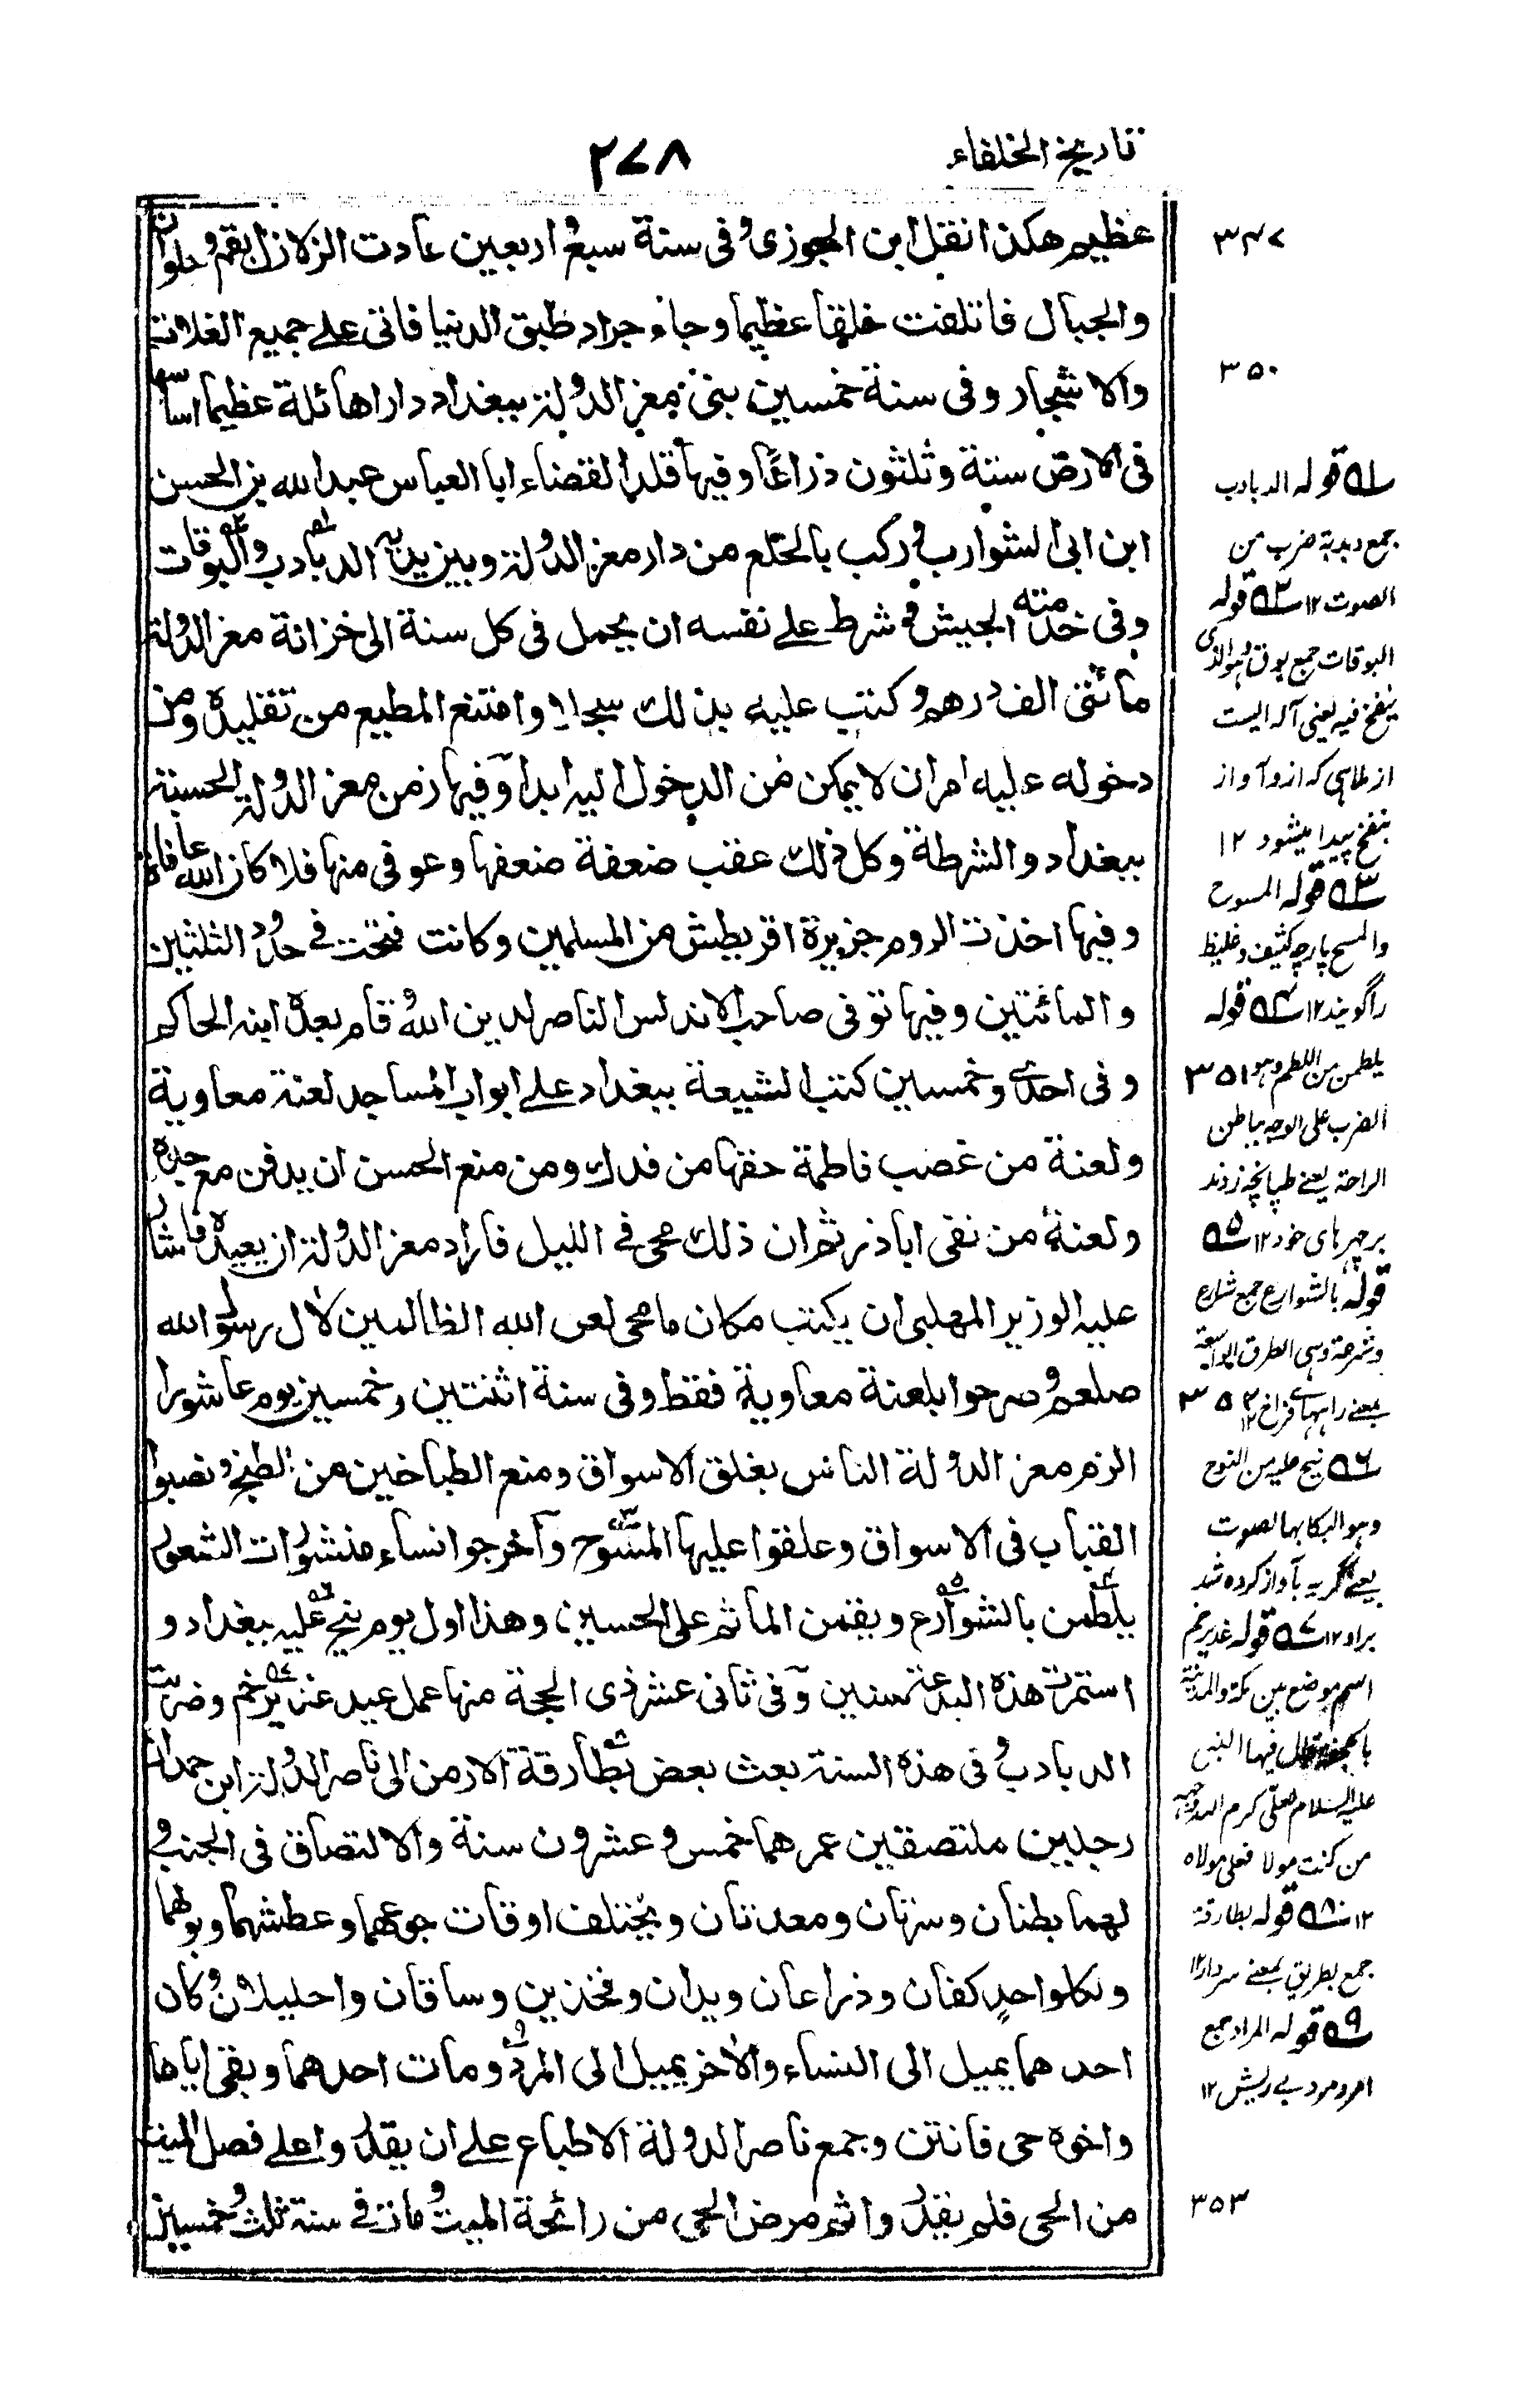 تاريخ الخلفاء
٢٧٨
عظيم هكذا نقل ابن الجوزى وفى سنة سبع و اربعين عادت الزلازل بقم و حلوان
والجبال فاتلفت خلقا عظيما وجاء جراد طبق الدنيا فاتى على جميع الغلات
والاشجار وفى سنة خمسين بنى معز الدولة ببغداد دارا هائلة عظيما اساسها
فى الارض ستة وثلثون ذراعا وفيها قلد القضاء ابا العباس عبد الله بن الحسن
ابن ابى الشوارب و ركب بالخلع من دار معز الدولة وبين يديه الدبادب والبوقات
وفى خدمته الجيش و شرط على نفسه ان يحمل فى كل سنة الى خزانة معز الدولة
مائتى الف درهم و كتب عليه بذلك سجلا وامتنع المطيع من تقليده ومن
دخوله عليه امر ان لا يمكن من الدخول اليه ابدا وفيها ضمن معز الدولة الحسبة
ببغداد والشرطة وكل ذلك عقب ضعفة ضعفها وعوفى منها فلا كان الله عافاه
وفيها اخذت الروم جزيرة اقريطش من المسلمين وكانت فتحت فى حدود الثلثين
والمائتين وفيها توفى صاحب الاندلس الناصر لدين الله و قام بعده ابنه الحاكم
وفى احدى وخمسين كتب الشيعة ببغداد على ابواب المساجد لعنة معاوية
ولعنة من غصب فاطمة حقها من فدك ومن منع الحسن ان يدفن مع جده
ولعنة من نفى اباذر ثم ان ذلك محى فى الليل فاراد معز الدولة ان يعيده فاشار
عليه الوزير المهلبى ان يكتب مكان ما محى لعن الله الظالمين لآل رسول الله
صلعم و صرحوا بلعنة معاوية فقط وفى سنة اثنتين وخمسين يوم عاشورا
الزم معز الدولة الناس بغلق الاسواق ومنع الطباخين من الطبخ و نصبوا
القباب فى الاسواق وعلقوا عليها المسوح واخرجوا نساء منشورات الشعور
يلطمن بالشوارع ويقمن الماتم على الحسين وهذا اول يوم نيح عليه ببغداد و
استمرت هذه البدعة سنين وفى ثانى عشر ذى الحجة منها عمل عيد غدير خم وضربت
الدبادب و فى هذه السنة بعث بعض بطارقة الارمن الى ناصر الدولة ابن حمدان
رجلين ملتصقين عمرهما خمس و عشرون سنة والالتصاق فى الجنب و
لهما بطنان وسرتان ومعدتان ويختلف اوقات جوعهما وعطشهما وبولهما
ولكل واحد كفان وذراعان ويدان وفخذين وساقان واحليلان و كان
احدهما يميل الى النساء والآخر يميل الى المرد ومات احدهما وبقى اياما
واخوه حى فانتن وجمع ناصر الدولة الاطباء على ان يقدروا على فصل الميت
من الحى فلم يقدروا ثم مرض الحى من رائحة الميت و مات فى سنة ثلث و خمسين
٣٤٧
٣٥٠
١ قوله الدبادب
جمع دبدبة ضرب من
الصوت ١٢ ٢ قوله
البوقات جمع بوق وهو الذى
ينفخ فيه يعنى آله ايست
كه ازو آواز
بنفخ پيدا ميشود ١٢
٣ قوله المسوح
والمسح پارچه كثيف وغليظ
را گويند ١٢ ٤ قوله
يلطمن من اللطم وهو
٣٥١
الضرب على الوجه بباطن
الراحة يعنے طپانچه زدند
بر چهرهاى خود ١٢ ٥
قوله بالشوارع جمع شارع
وهى الطرق الواسعة
بمعنے راههاے فراخ ١٢
٣٥٢
٦ نيح عليه من النوح
وهو البكا بها لصوت
يعنے گريه بآواز كرده شد
براو ١٢ ٧ قوله غدير خم
اسم موضع بين مكة والمدينة
قال فيها النبى
عليه السلام لعلى كرم الله وجهه
من كنت مولاه فعلى مولاه
١٢ ٨ قوله بطارقة
جمع بطريق بمعنے سردار ١٢
٩ قوله المراد جمع
امرد مرد بے ريش ١٢
٣٥٣